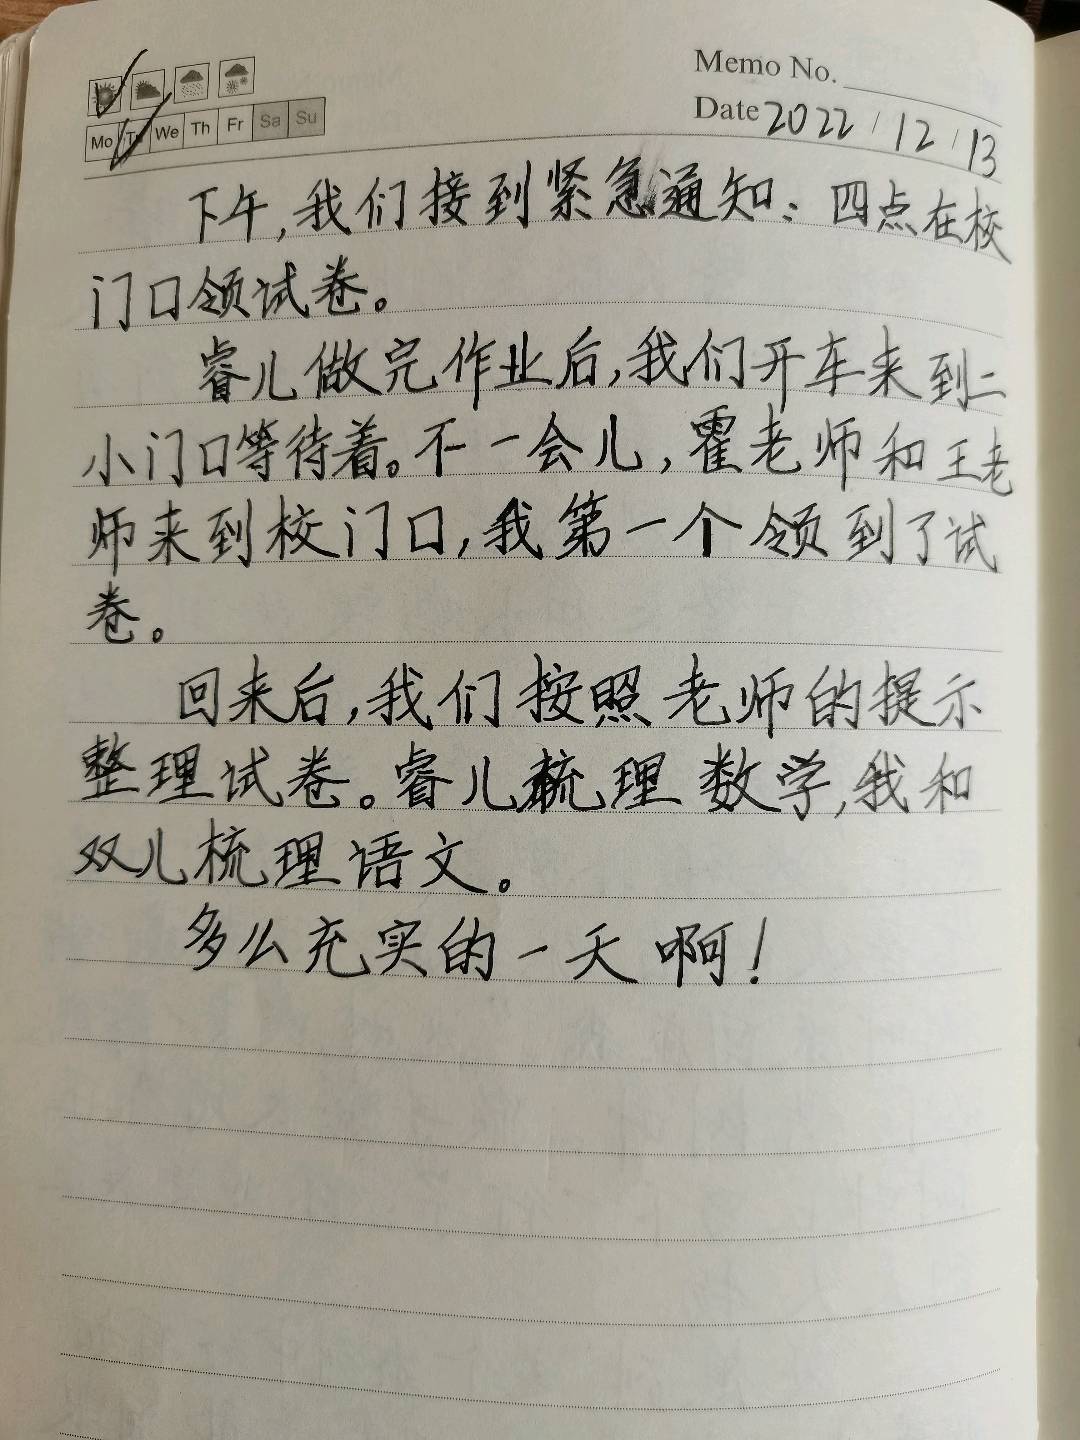 Memo No.
Mo Tu We Th Fr Sa Su
Date 2022/12/13
下午,我们接到紧急通知:四点在校
门口领试卷。
睿儿做完作业后,我们开车来到二
小门口等待着。不一会儿,霍老师和王老
师来到校门口,我第一个领到了试
卷。
回来后,我们按照老师的提示
整理试卷。睿儿梳理数学,我和
双儿梳理语文。
多么充实的一天啊!